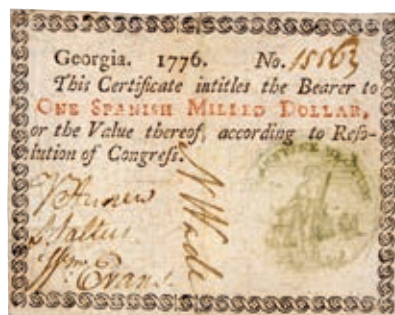 Georgia. 1776. No. 15563
This Certificate intitles the Bearer to
ONE SPANISH MILLED DOLLAR,
or the Value thereof, according to Reſo-
lution of Congreſs.
N Wade
Wm Evans